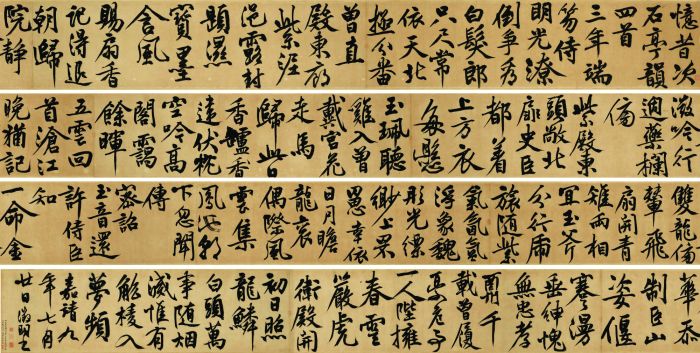 憶昔次
石亭韻
四首
三年端
笏侍
明光潦
倒爭看
白髮郎
只尺常
依天北
極分番
曾直
殿東廊
紫泥
浥露封
題濕
寶墨
含風
賜扇香
記得退
朝歸
院靜
微吟行
過藥欄
傍
紫殿東
頭敞北
扉史臣
都着
上方衣
每懸
玉珮聽
雞入曾
戴宮花
走馬
歸此日
香爐香
違伏枕
空吟高
閣靄
餘暉
五雲回
首滄江
晚猶記
雙龍傍
輦飛
扇開青
雉兩相
宜玉斧
分行虎
旅隨紫
氣氤氳
浮象魏
彤光縹
緲上罘
罳幸依
日月瞻
龍袞
偶際風
雲集
鳳池朝
下忽聞
傳
密詔
玉音還
許侍臣
知
一命金
華忝
制臣山
姿偃
蹇漫
垂紳愧
無忠孝
酬千
載曾履
憂危事
一人陛擁
春雲
嚴虎
衛殿開
初日照
龍鱗
白頭萬
事隨烟
滅惟有
觚棱入
夢頻
嘉靖九
年七月
廿日徵明書